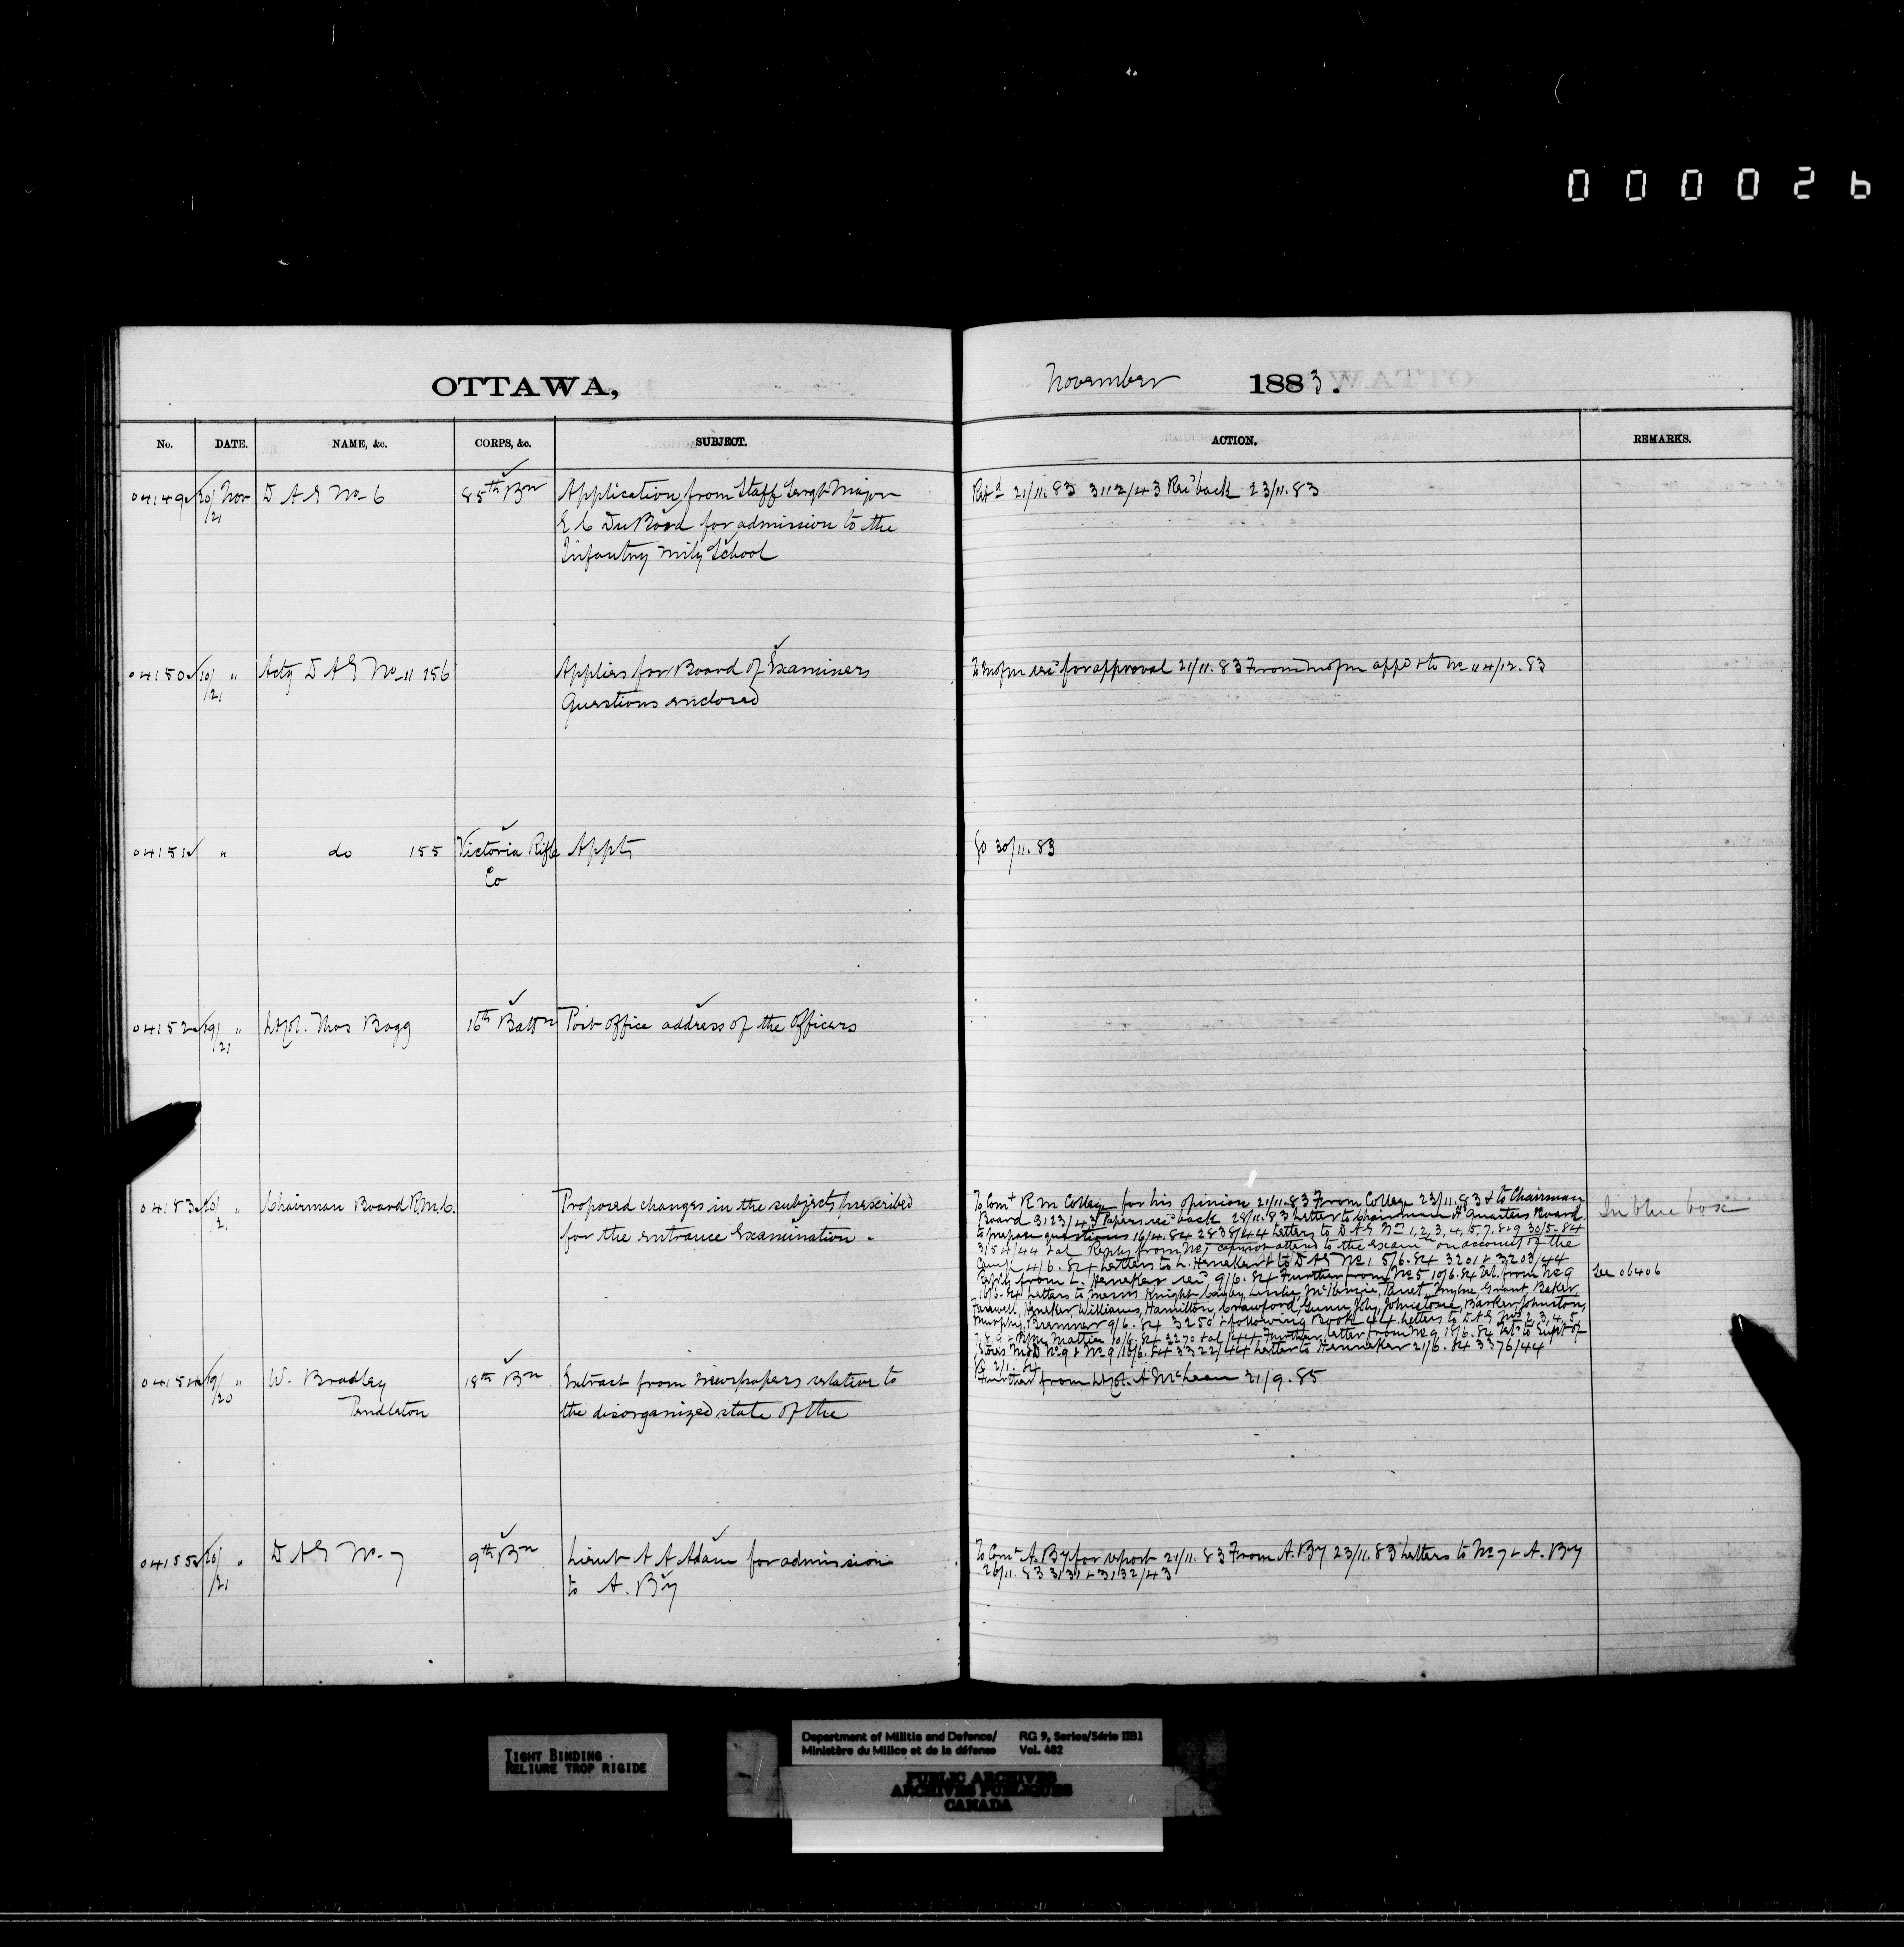 000026
OTTAWA,
November 1883.
No. DATE. NAME, &c. CORPS, &c. SUBJECT. ACTION. REMARKS.
04149 20/21 Nov D A G No 6 85th Bn Application from Staff Sergt Major
E C Du for admission to the
Infantry Mily School
Retd 21/11.83 3112/43 Rec'd back 23/11.83
04150 10/21 " Actg D A G No 11 156 Applies for Board of Examiners
Questions enclosed
To Mofm for approval 21/11.83 From Mofm appd & to No 11 4/12.83
04151 " do 155 Victoria Rifle Appts
Co
GO 30/11.83
04152 19/21 " Lt Col. Thos Bagg 16th Battn Post Office address of the Officers
04153 20/21 " Chairman Board R.M.C. Proposed changes in the subjects prescribed
for the entrance Examination.
To Comt R M College for his opinion 21/11.83 From College 23/11.83 & to Chairman
Board 3123/43 Papers rec'd back 28/11.83 Letter to Chairman Hd Quarters Board
to prepare questions 16/4.84 2838/44 Letters to D A G Nos 1, 2, 3, 4, 5, 7, 8 & 9 30/5.84
3154/44 & al Reply from No 7 cannot attend to the examn on account of the
Camp 4/6.84 Letters to L. Heneker & to D A G No 1 5/6.84 3201 & 3203/44
Reply from L. Heneker rec'd 9/6.84 Further from No 5 10/6.84 from No 9
10/6.84 Letters to Messrs Knight Leslie, McKenzie, Panet, Grant, Baker
Farewell, Heneker Williams, Hamilton, Crawford, Gunn, Joly, Johnstone, Barker, Johnston,
Murphy, Bremner 9/6.84 3250 & following Book 44 Letters to D A G Nos 2, 3, 4, 5,
7, 8, 9 10/6.84 3270 & al/44 Further letter from No 9 18/6.84 to Supt of
Stores No 9 & No 9 18/6.84 3322/44 Letter to Henneker 21/6.84 3376/44
In blue box
See 06406
04154 19/20 " W. Bradley 18th Bn Extract from Newspapers relative to
Pendleton the disorganized state of the
2/1.84
Further from Lt Col. A McLean 21/9.85
04155 20/21 " D A G No. 7 9th Bn Lieut A A Adam for admission
to A. By
To Comt A. By for report 21/11.83 From A. By 23/11.83 Letters to No 7 & A. By
26/11.83 3131 & 3132/43
TIGHT BINDING
RELIURE TROP RIGIDE
Department of Militia and Defence/ RG 9, Series/Série IIB1
Ministère du Milice et de la défense Vol. 482
PUBLIC ARCHIVES
ARCHIVES PUBLIQUES
CANADA